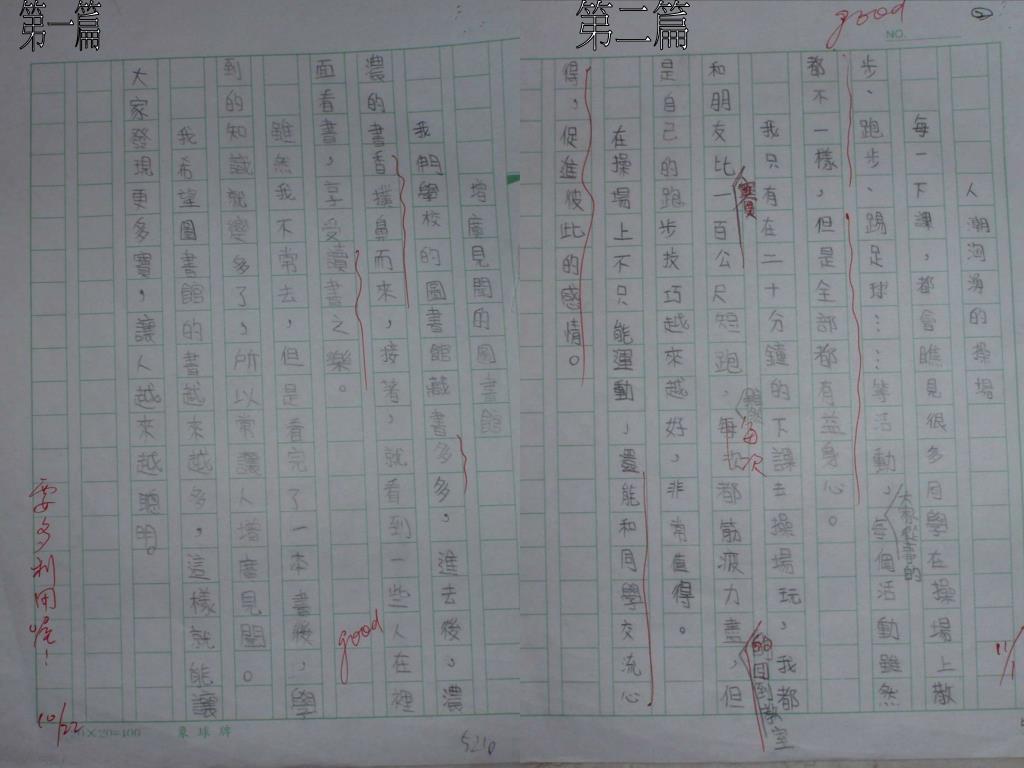 第一篇
增廣見聞的圖書館
我們學校的圖書館藏書多多，進去後，濃
濃的書香撲鼻而來，接著，就看到一些人在裡
面看書，享受讀書之樂。
雖然我不常去，但是看完了一本書後，學
到的知識就變多了，所以常讓人增廣見聞。
我希望圖書館的書越來越多，這樣就能讓
大家發現更多寶，讓人越來越聰明。
good
要多利用喔！
10/22
5210
6×20=100 東球牌
第二篇
good
②
NO.
人潮洶湧的操場
每一下課，都會瞧見很多同學在操場上散
步、跑步、踢足球……等活動，每個活動雖然
大家從事的
都不一樣，但是全部都有益身心。
我只有在二十分鐘的下課去操場玩，我都
和朋友比一百公尺短跑，每次都筋疲力盡，但
賽
每次
的回到教室
是自己的跑步技巧越來越好，非常值得。
在操場上不只能運動，還能和同學交流心
得，促進彼此的感情。
11/1